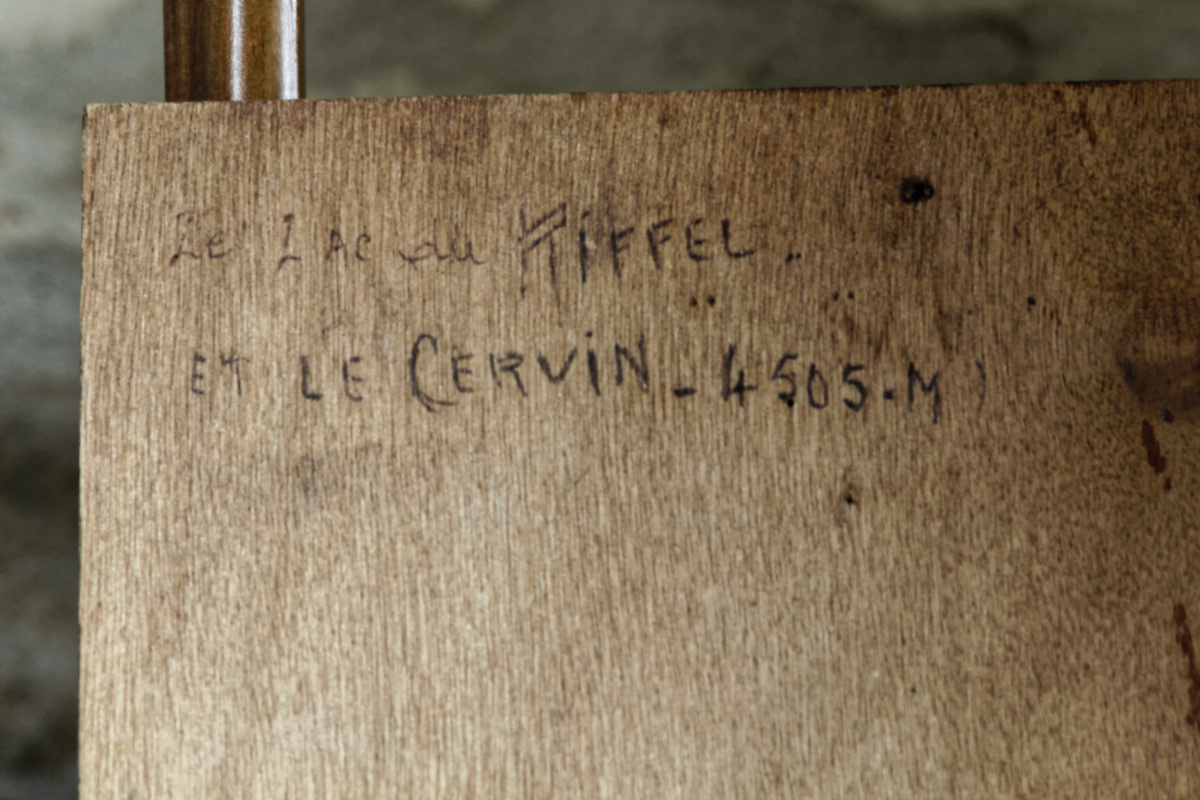 Le Lac du RiFFEL.
ET LE CERViN - 4505.M)